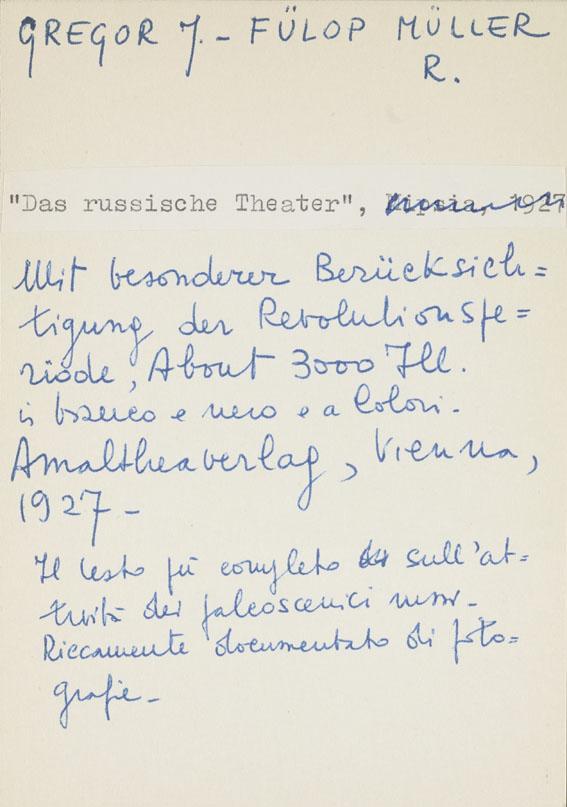 GREGOR J. - FÜLOP MÜLLER
R.
"Das russische Theater", Lipsia, 1927
Mit besonderer Berücksich=
tigung der Revolutionspe=
riode, About 3000 Ill.
in bianco e nero e a colori.
Amaltheaverlag, Vienna,
1927 -
Il testo più completo sull'at=
tività dei palcoscenici russi -
Riccamente documentato di foto=
grafie -